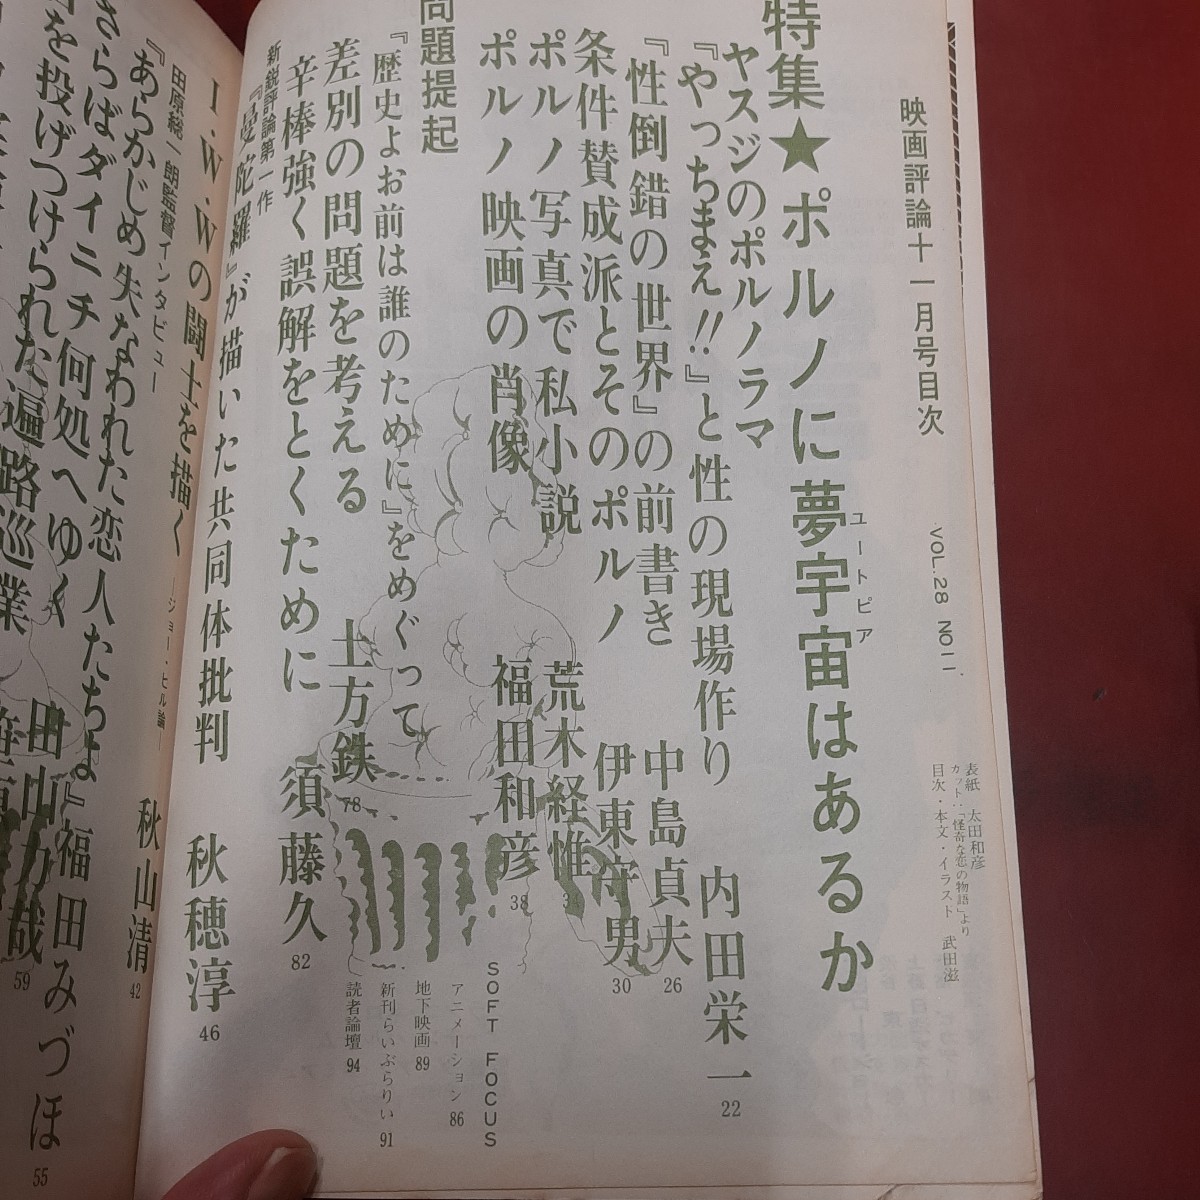 映画評論十一月号目次
VOL.28 NO11
表紙 太田和彦
カット:「怪奇な恋の物語」より
目次・本文・イラスト 武田滋
特集★ポルノに夢宇宙はあるか
ユートピア
ヤスジのポルノラマ
『やっちまえ!!』と性の現場作り 内田栄一 22
『性倒錯の世界』の前書き 中島貞夫 26
条件賛成派とそのポルノ 伊東守男 30
ポルノ写真で私小説 荒木経惟 34
ポルノ映画の肖像 福田和彦 38
問題提起
『歴史よお前は誰のために』をめぐって
差別の問題を考える 土方鉄 78
辛棒強く誤解をとくために 須藤久 82
新鋭評論第一作
『曼陀羅』が描いた共同体批判 秋穂淳 46
I・W・Wの闘士を描く ―ジョー・ヒル論― 秋山清 42
田原総一朗監督インタビュー
『あらかじめ失なわれた恋人たちよ』福田みづほ 55
さらばダイニチ何処へゆく 田山力哉 59
を投げつけられた遍路巡業
SOFT FOCUS
アニメーション 86
地下映画 89
新刊らいぶらりい 91
読者論壇 94